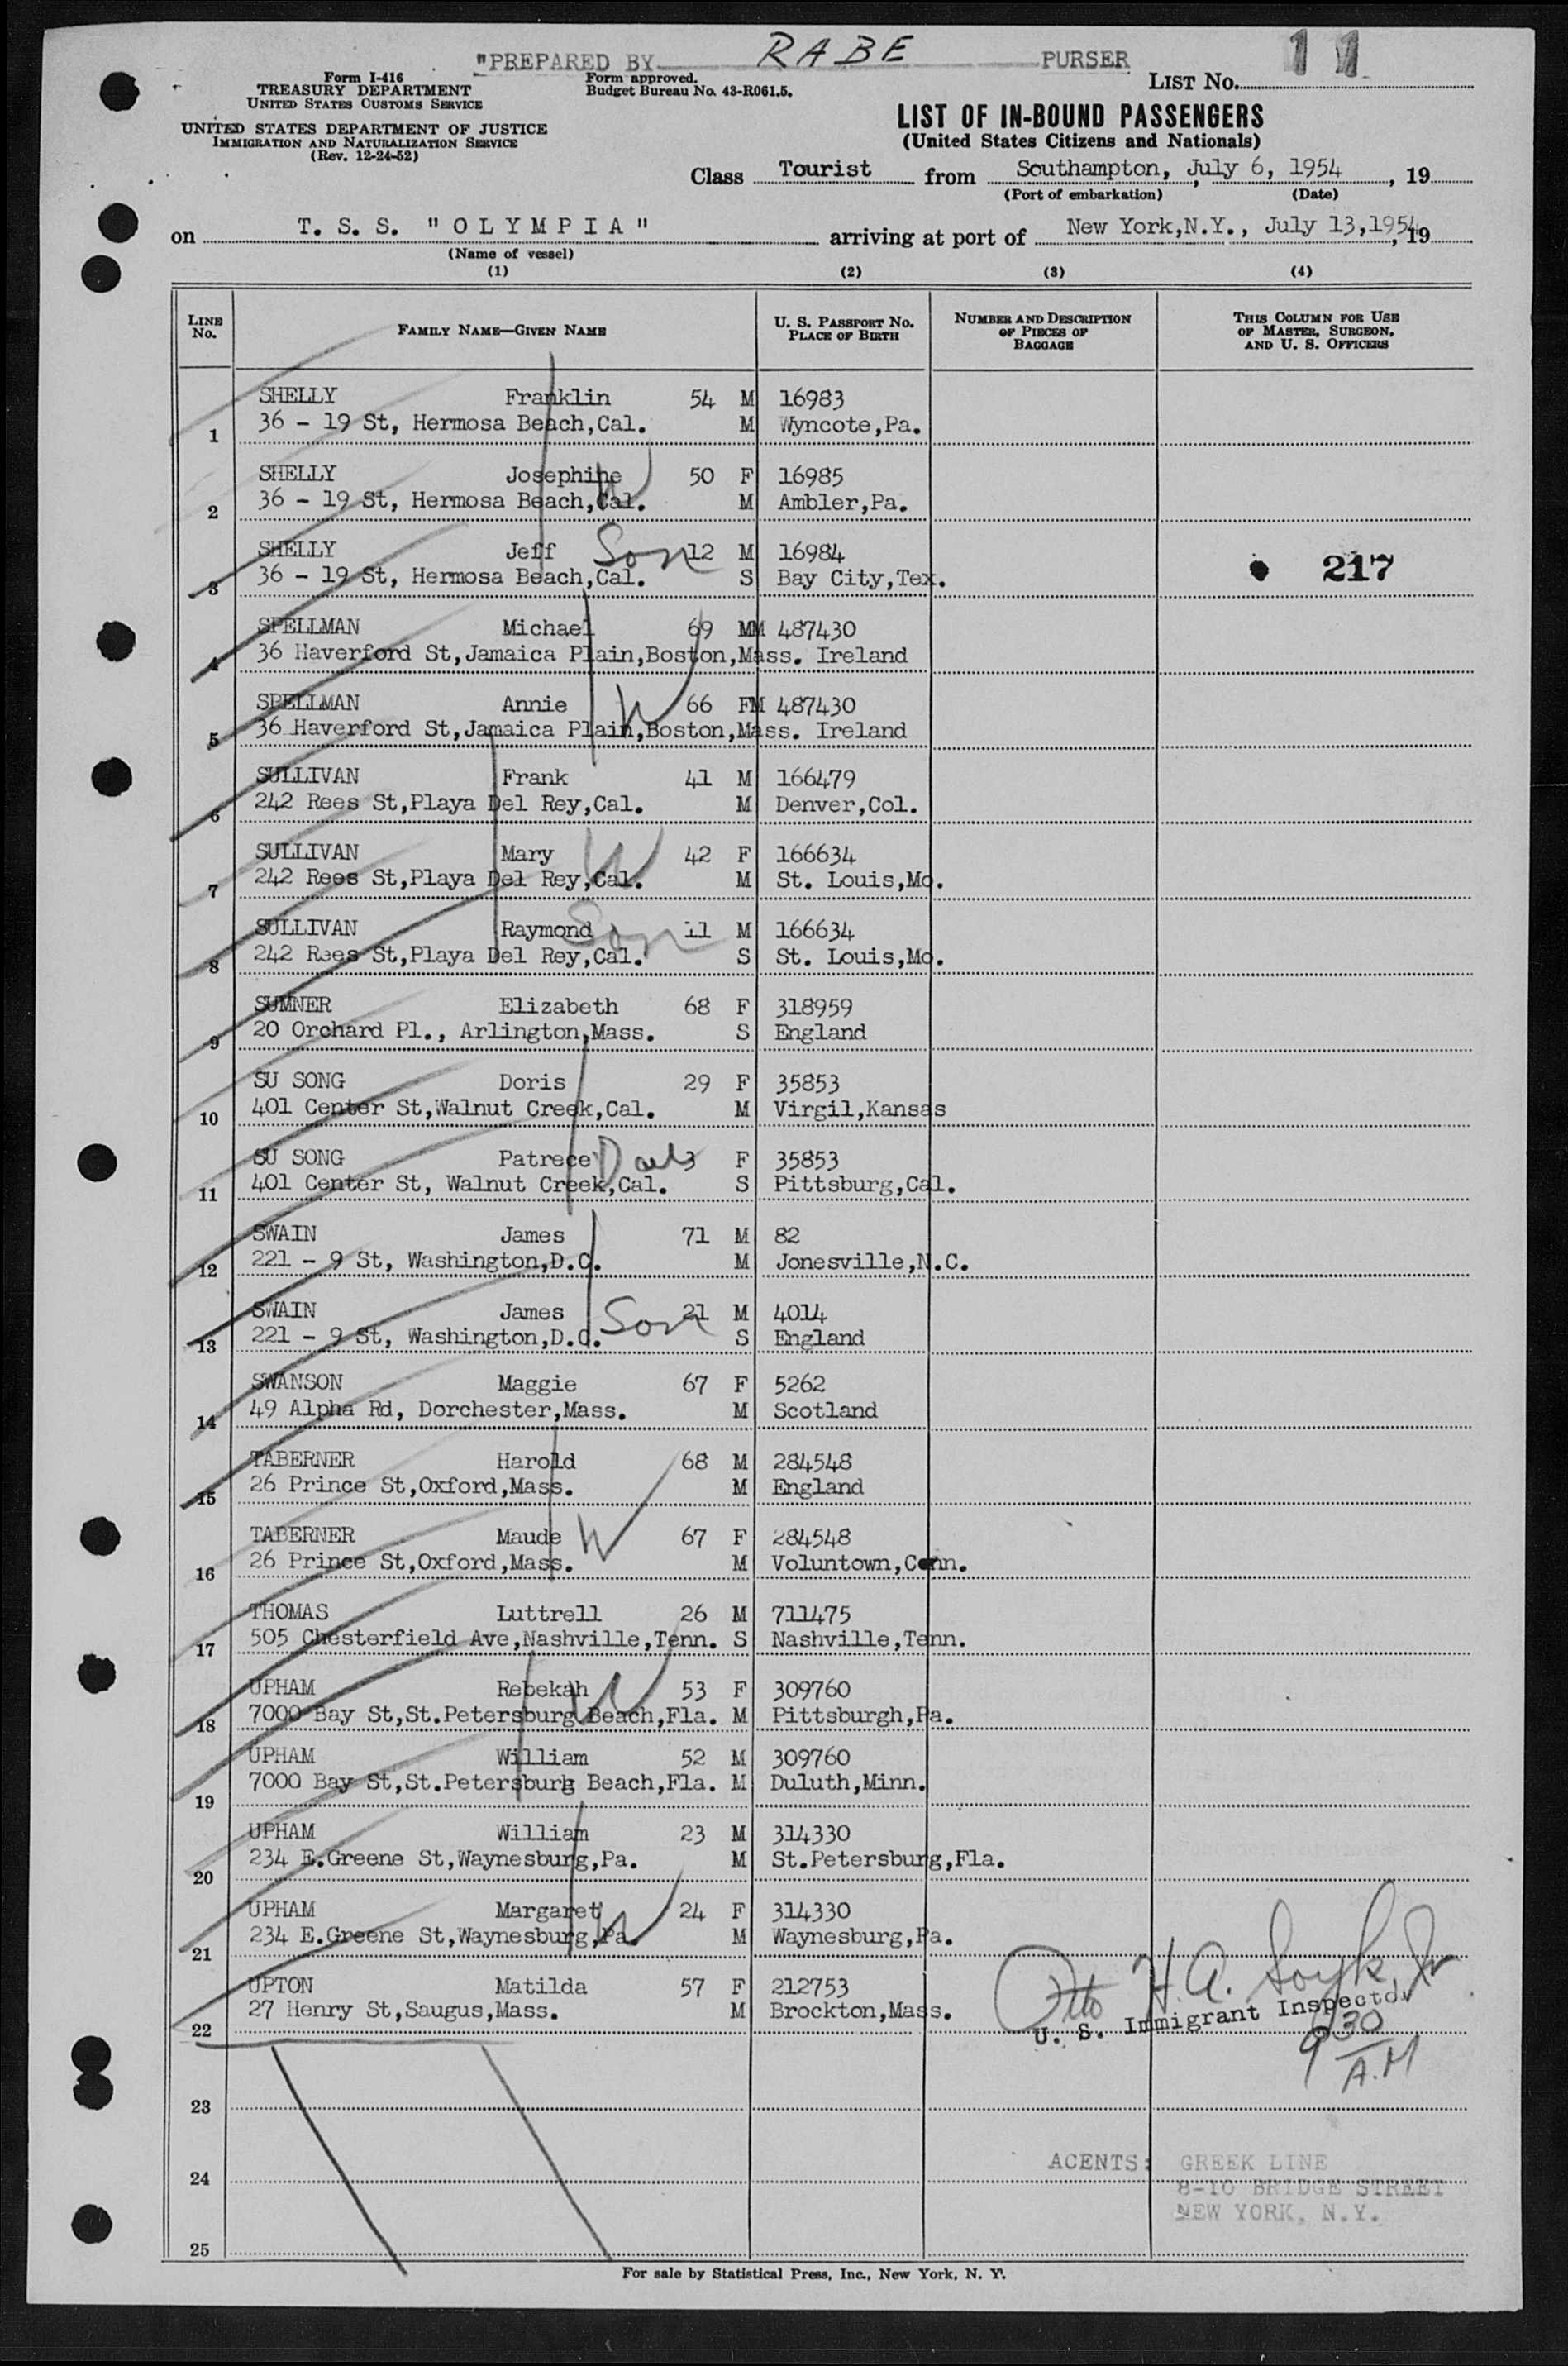 "PREPARED BY RABE PURSER
Form I-416
TREASURY DEPARTMENT
UNITED STATES CUSTOMS SERVICE
Form approved.
Budget Bureau No. 43-R061.5.
LIST No. 11
UNITED STATES DEPARTMENT OF JUSTICE
IMMIGRATION AND NATURALIZATION SERVICE
(Rev. 12-24-52)
LIST OF IN-BOUND PASSENGERS
(United States Citizens and Nationals)
Class Tourist from Southampton, July 6, 1954, 19
(Port of embarkation) (Date)
on T. S. S. "OLYMPIA" arriving at port of New York,N.Y., July 13,1954, 19
(Name of vessel)
(1) (2) (3) (4)
LINE No. FAMILY NAME—GIVEN NAME U. S. PASSPORT No. PLACE OF BIRTH NUMBER AND DESCRIPTION OF PIECES OF BAGGAGE THIS COLUMN FOR USE OF MASTER, SURGEON, AND U. S. OFFICERS
SHELLY Franklin 54 M 16983
1 36 - 19 St, Hermosa Beach,Cal. M Wyncote,Pa.
SHELLY Josephine W 50 F 16985
2 36 - 19 St, Hermosa Beach,Cal. M Ambler,Pa.
SHELLY Jeff Son 12 M 16984
3 36 - 19 St, Hermosa Beach,Cal. S Bay City,Tex. 217
SPELLMAN Michael 69 MM 487430
4 36 Haverford St,Jamaica Plain,Boston,Mass. Ireland
SPELLMAN Annie W 66 FM 487430
5 36 Haverford St,Jamaica Plain,Boston,Mass. Ireland
SULLIVAN Frank 41 M 166479
6 242 Rees St,Playa Del Rey,Cal. M Denver,Col.
SULLIVAN Mary W 42 F 166634
7 242 Rees St,Playa Del Rey,Cal. M St. Louis,Mo.
SULLIVAN Raymond Son 11 M 166634
8 242 Rees St,Playa Del Rey,Cal. S St. Louis,Mo.
SUMNER Elizabeth 68 F 318959
9 20 Orchard Pl., Arlington,Mass. S England
SU SONG Doris 29 F 35853
10 401 Center St,Walnut Creek,Cal. M Virgil,Kansas
SU SONG Patrece Dau 3 F 35853
11 401 Center St, Walnut Creek,Cal. S Pittsburg,Cal.
SWAIN James 71 M 82
12 221 - 9 St, Washington,D.C. M Jonesville,N.C.
SWAIN James Son 21 M 4014
13 221 - 9 St, Washington,D.C. S England
SWANSON Maggie 67 F 5262
14 49 Alpha Rd, Dorchester,Mass. M Scotland
TABERNER Harold 68 M 284548
15 26 Prince St,Oxford,Mass. M England
TABERNER Maude W 67 F 284548
16 26 Prince St,Oxford,Mass. M Voluntown,Conn.
THOMAS Luttrell 26 M 711475
17 505 Chesterfield Ave,Nashville,Tenn. S Nashville,Tenn.
UPHAM Rebekah W 53 F 309760
18 7000 Bay St,St.Petersburg Beach,Fla. M Pittsburgh,Pa.
UPHAM William 52 M 309760
19 7000 Bay St,St.Petersburg Beach,Fla. M Duluth,Minn.
UPHAM William 23 M 314330
20 234 E.Greene St,Waynesburg,Pa. M St.Petersburg,Fla.
UPHAM Margaret W 24 F 314330
21 234 E.Greene St,Waynesburg,Pa. M Waynesburg,Pa.
UPTON Matilda 57 F 212753
22 27 Henry St,Saugus,Mass. M Brockton,Mass.
Otto H.A. Jr
U. S. Immigrant Inspector
9 30 A.M
23
24
25
AGENTS: GREEK LINE
8-10 BRIDGE STREET
NEW YORK, N.Y.
For sale by Statistical Press, Inc., New York, N. Y.